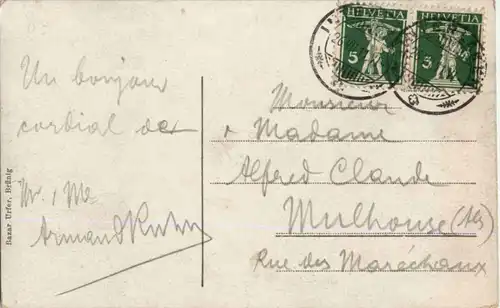 HELVETIA HELVETIA
5 3
Un bonjour
cordial de
Mr. & Me
Armand Kuhn
Bazar Urfer, Brünig
Monsieur
& Madame
Alfred Claude
Mulhouse (Als)
Rue des Maréchaux